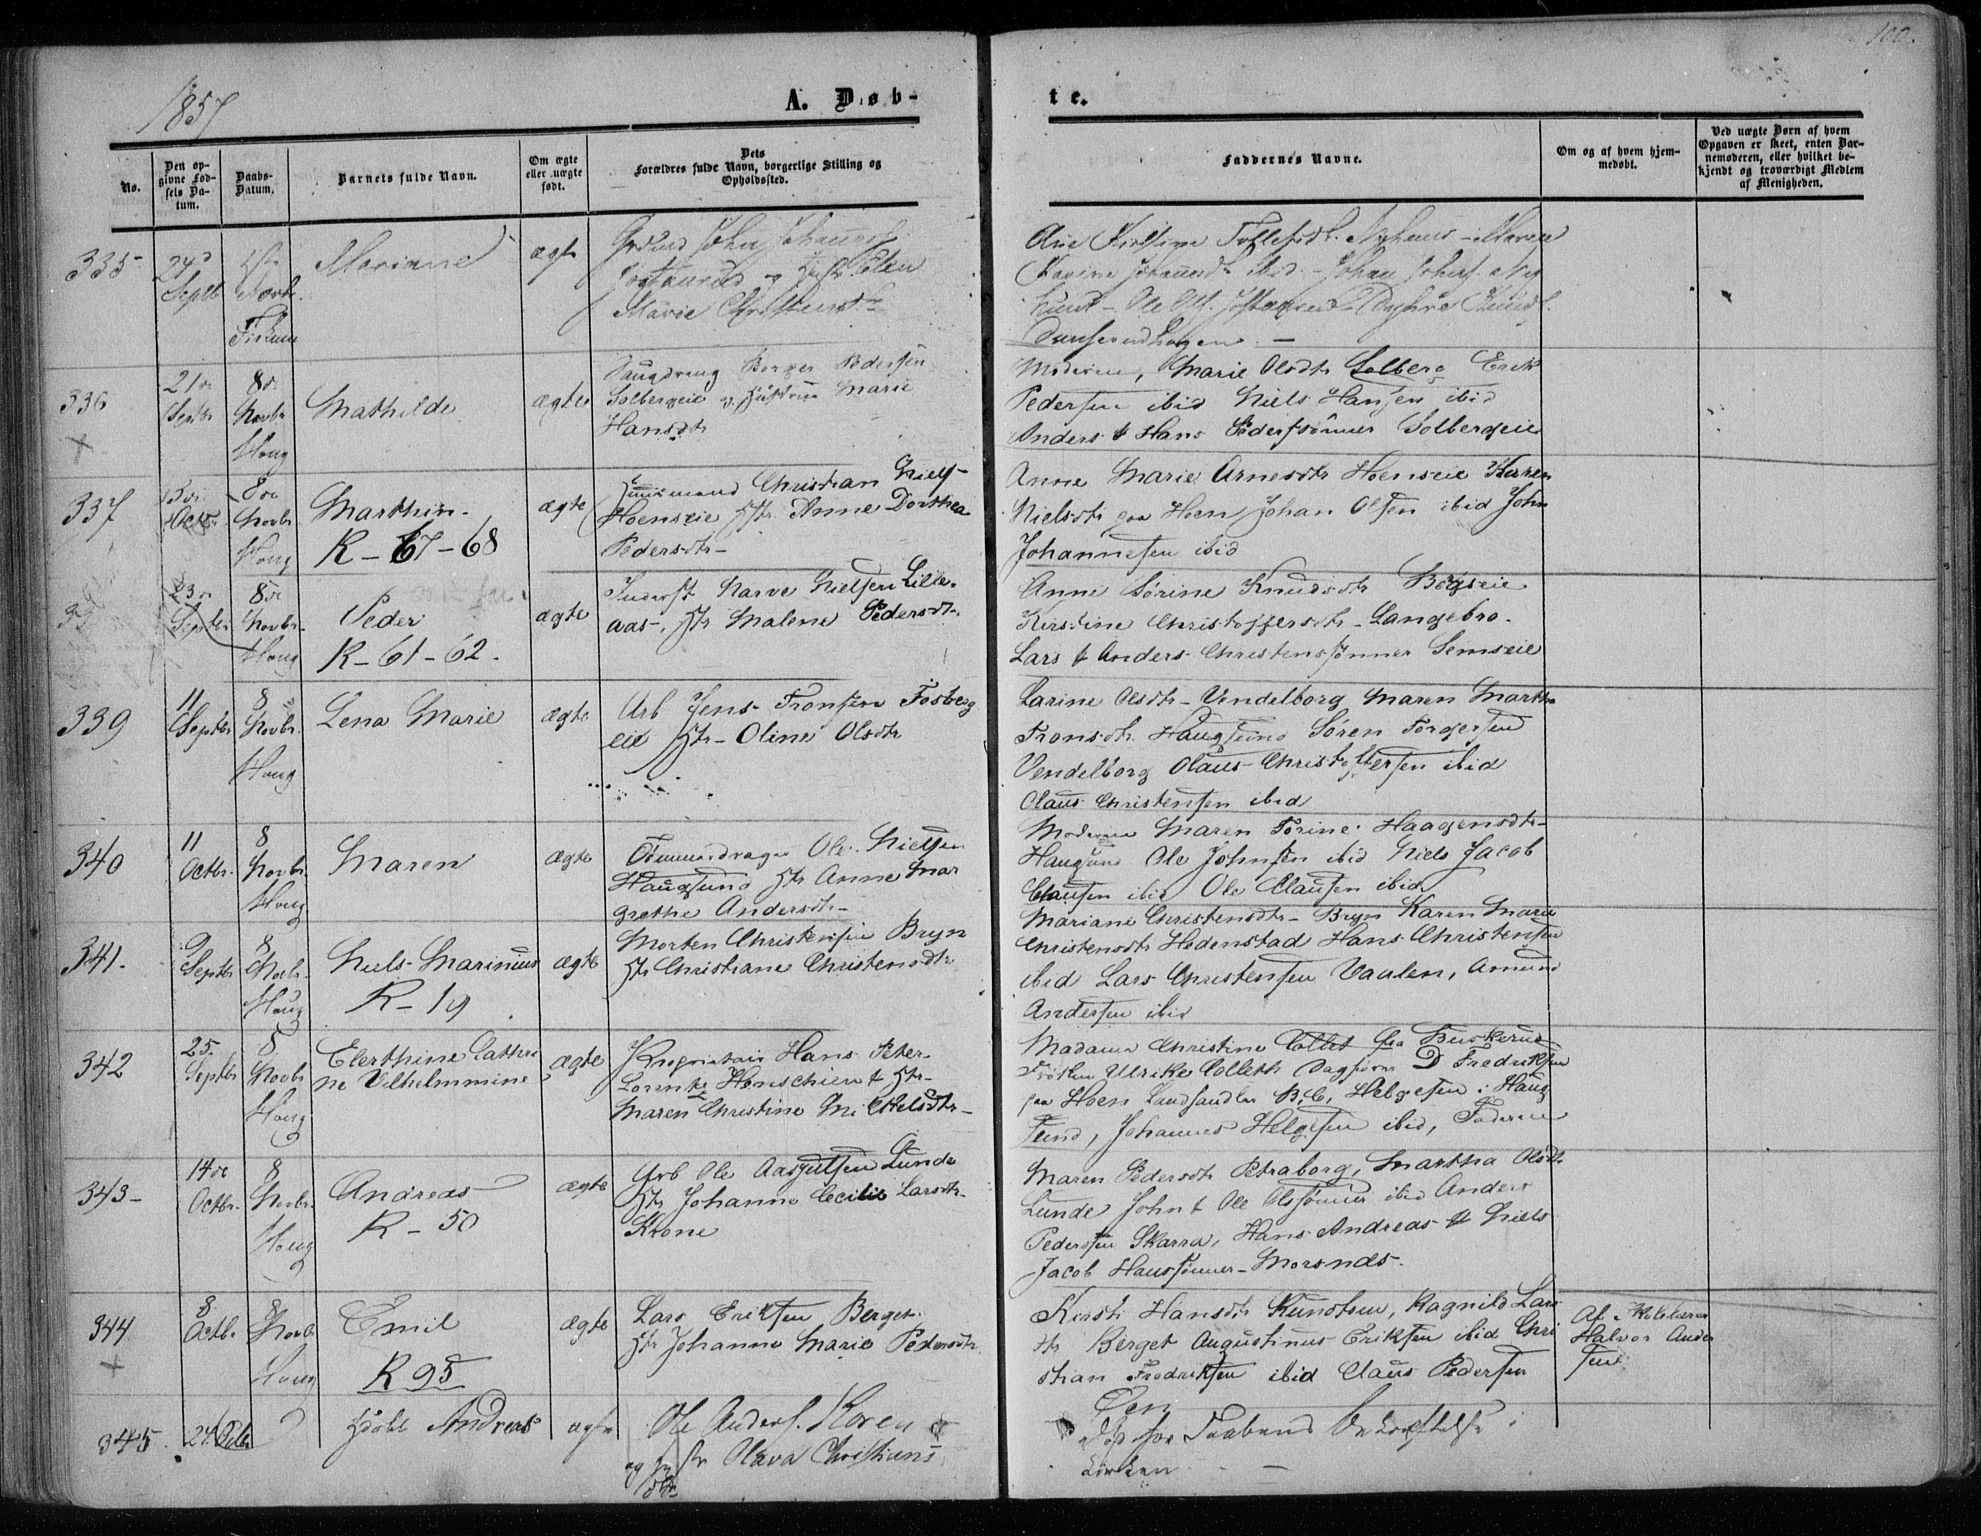 100.
1857
A. Døb-
te.
No.
Den op-
givne Fød-
sels Da-
tum.
Daabs-
Datum.
Barnets fulde Navn.
Om ægte
eller uægte
født.
Dets
Forældres fulde Navn, borgerlige Stilling og
Opholdssted.
Faddernes Navne.
Om og af hvem hjem-
medøbt.
Ved uægte Børn af hvem
Opgaven er skeet, enten Bar-
nemoderen, eller hvilket be-
kjendt og troværdigt Medlem
af Menigheden.
335
24d
Septb
Novbr.
Fiskum
Mariane
ægte
John Johannes.
Hustr Elen
Marie Christensdtr
Johannesdtr ibid - Johan Johns.
Knut - Ole Ols.
336
21de
Septbr
8de
Novbr
Houg
Mathilde
ægte
Borger Pedersen
Solbergeie og Hustrue Marie
Hansdtr
Moderen, Marie Olsdtr Solberg Erik
Pedersen ibid Niels Hansen ibid
Anders & Hans Pedersønner Solbergeie
337
13de
Octbr
8de
Novbr
Houg
Marthin-
R-67-68
ægte
Huusmand Christian Niels-
Hoenseie Htr Anne Dorthea
Pedersdtr-
Anne Marie Arnesdtr Hoenseie Karen
Nielsdtr paa Hoen Johan Olsen ibid John
Johannesen ibid
23de
Septbr
8de
Novbr-
Houg
Peder
R-61-62.
ægte
Inderst Narve Nielsen Lille-
aas-, Htr Malene Pedersdtr
Anne Sørine Knudsdtr Bøgseie
Kirstine Christoffersdtr - Langebro-
Lars & Anders Christensønner Semseie
339
11
Septbr
8
Novbr.
Houg
Lena Marie
ægte
Arb Jens Fronsen Fosberg
eie Htr - Oline Olsdtr
Karine Olsdtr - Vendelborg Maren Marthe
Fronsdtr Haugsund Søren Torgersen
Vendelborg Olaus Christoffersen ibid
Olaus Christensen ibid
340
11
Octbr.
8
Novbr.
Houg
Maren
ægte
Tømmerdrager Ole Nielsen
Haugsund Htr Anne Mar
grethe Andersdtr-
Moderen Maren Torine Haagensdtr-
Haugsund Ole Johnsen ibid Niels Jacob
Clausen ibid Ole Clausen ibid
341-
9
Septbr
8
Novbr-
Houg
Niels Marinius
R-19
ægte
Morten Christensen Bryn
Htr Christiane Christensdtr
Mariane Christensdtr - Bryn Karen Marie
Christensdtr Hedenstad Hans Christensen
ibid Lars Christensen Vaalen, Amund
Andersen ibid
342
25
Septbr
8
Novbr
Houg
Elerthine Cathri
ne Vilhelmmine
ægte
Proprietair Hans Peter
Lorentz Henschien & Htr-
Maren Christine Mickelsdtr-
Madame Christine Collet fra Buskerud
Frøken Ulrike Colleth Dagfinn D Fredriksen
paa Hoen Landhandler B.C. Helgesen i Haug
sund, Johannes Helgesen ibid, Faderen
343-
14de
Octbr.
8
Novbr-
Houg
Andreas
R-50
ægte
Arb Ole Aasjulsen Lunde
Htr Johanne Cecilie Larsdtr-
Krone
Maren Pedersdtr Petraborg, Martha Olsdtr
Lunde John & Ole Olsønner ibid Anders
Pederssen Skarra, Hans Andreas & Niels
Jacob Hanssønner - Morsnæs-
344
8
Octbr.
8
Novb
Houg
Emil
R 95
ægte
Lars Eriksen Berget-
Htr Johanne Marie Pedersdtr
Kirsti Hansdtr Knudsen, Ragnild Lars
dtr Berget Augustinus Eriksen ibid Chri
stian Fredriksen ibid Claus Pedersen
Af Kirketjener
Halvor Ander
sen
345.
24 Octbr
Andreas
ægte
Ole Anders. Koren
og Hustr Olava Christians
dtr